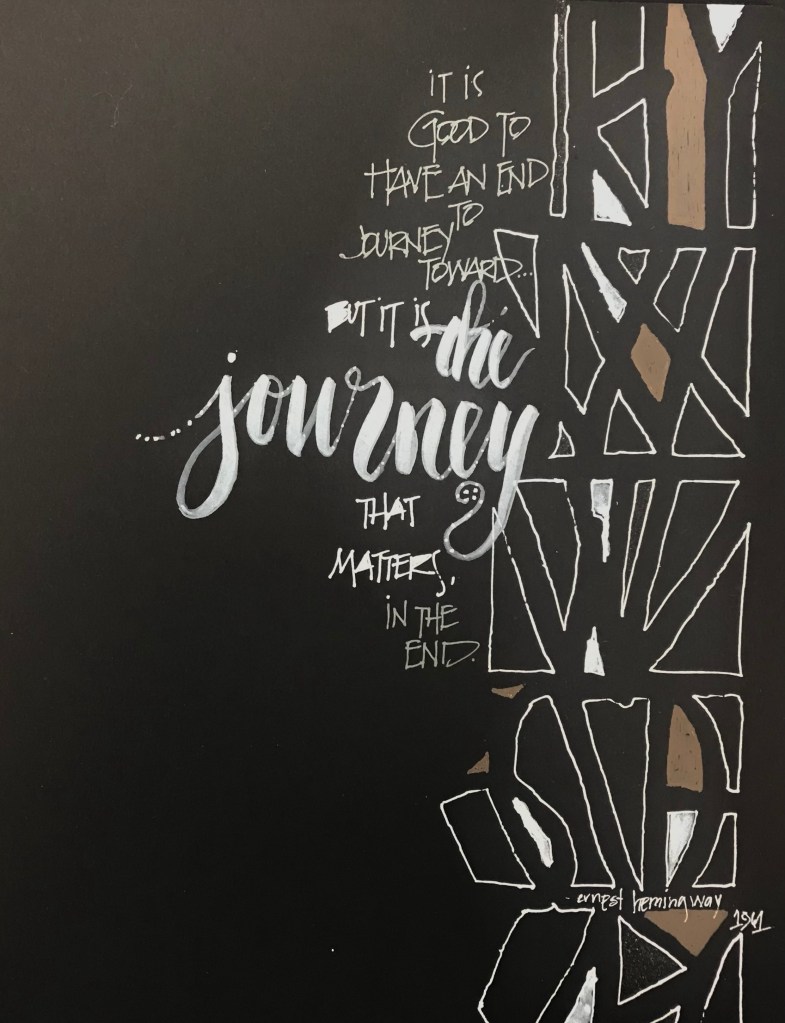 iT iS
GOOD TO
HAVE AN END
TO
JOURNEY
TOWARD...
BUT iT iS the
journey
THAT
MATTERS,
iN THE
END.
ernest hemingway
1961